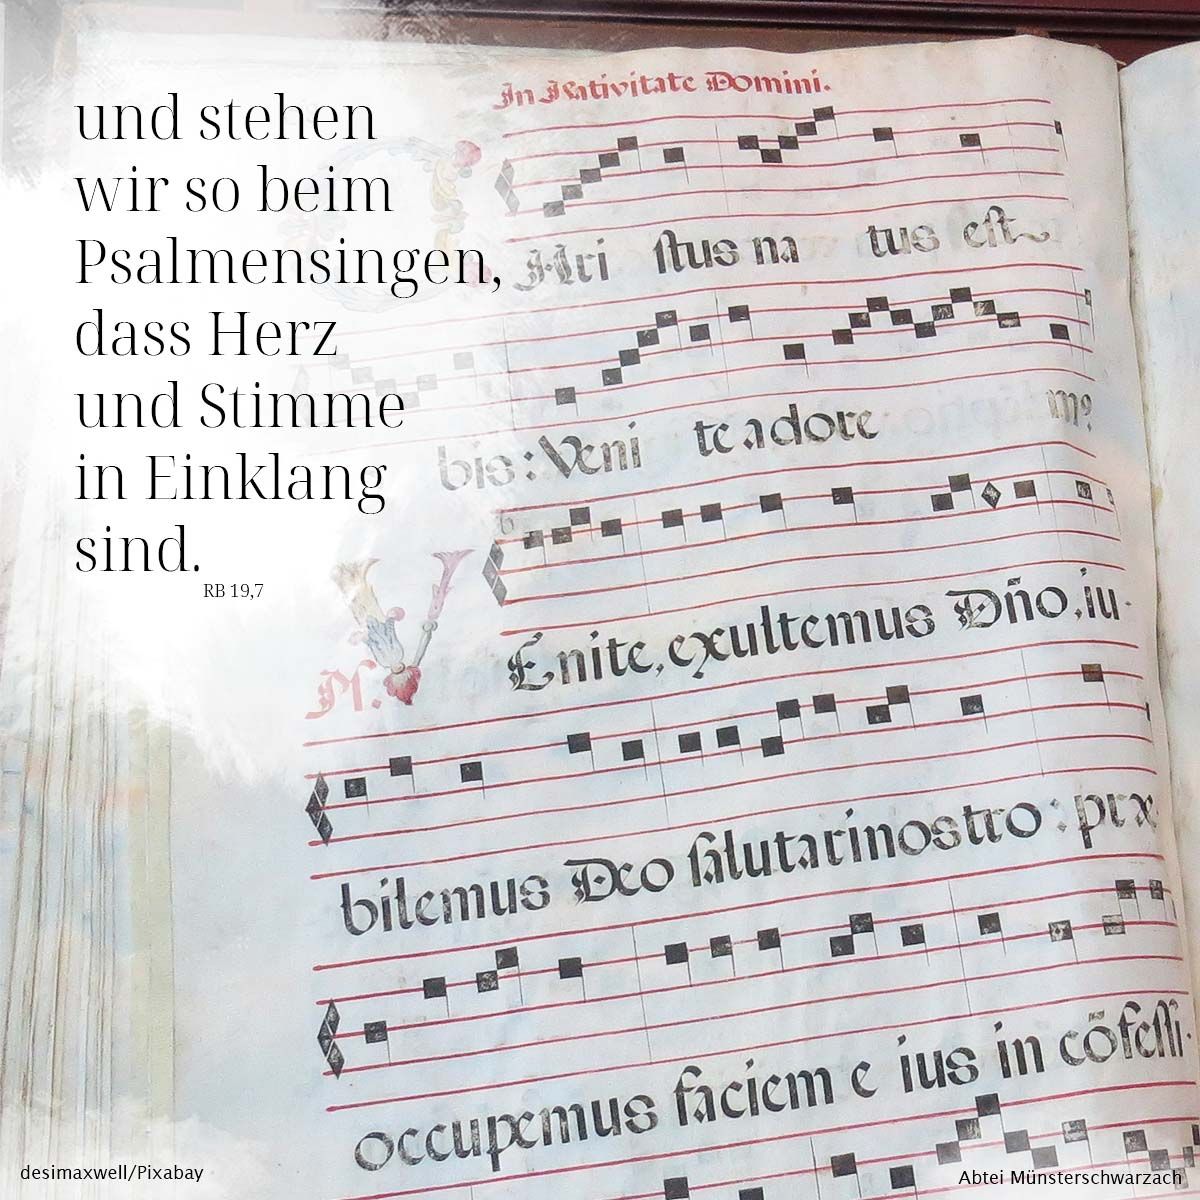 und stehen
wir so beim
Psalmensingen,
dass Herz
und Stimme
in Einklang
sind.
RB 19,7
In Nativitate Domini.
Hri stus na tus est
bis: Veni te adore m9
V
Enite, exultemus Dño, iu-
bilemus Deo salutari nostro: præ
occupemus faciem e ius in cōfessi-
desimaxwell/Pixabay
Abtei Münsterschwarzach